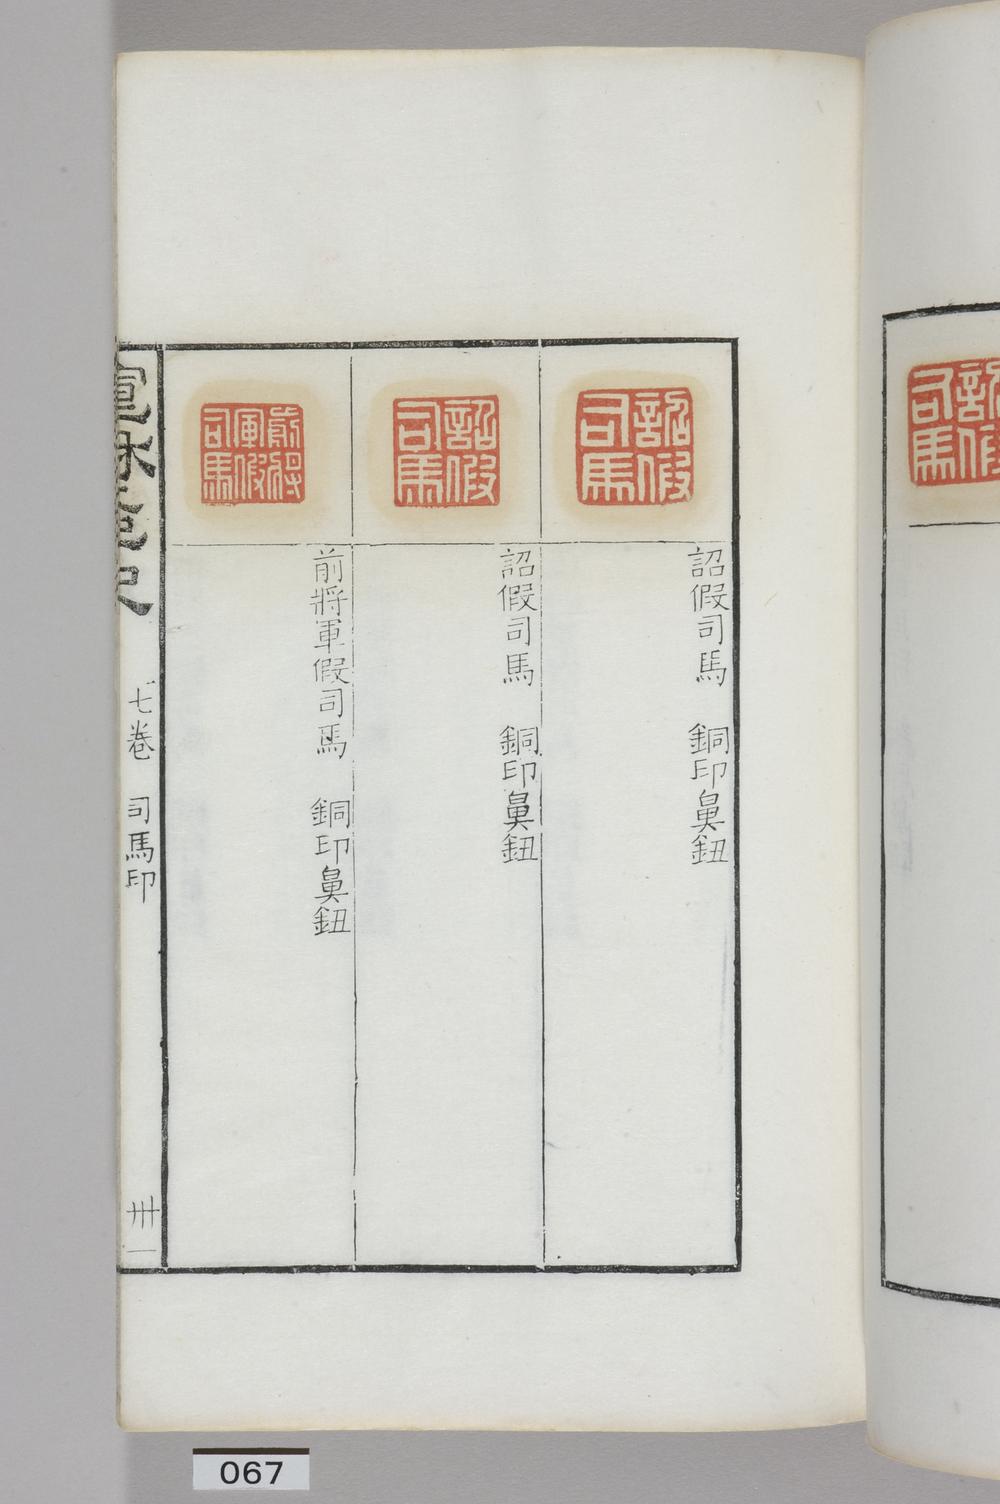 詔假司馬
詔假司馬　銅印鼻鈕
詔假司馬
詔假司馬　銅印鼻鈕
前將軍假司馬
前將軍假司馬　銅印鼻鈕
七卷　司馬印
卅一
詔假司馬
067